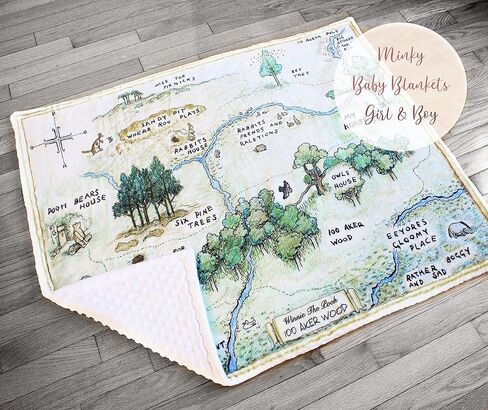 Minky
Baby Blankets
Girl & Boy
TO NORTH POLE
NICE FOR
PIKNICKS
BEE
TREE
SANDY PIT
WHERE ROO PLAYS
RABBITS
HOUSE
RABBITS
FRENDS AND
RALETIONS
MY
POOH BEARS
HOUSE
SIX PINE
TREES
OWLS
HOUSE
100 AKER
WOOD
EEYORES
GLOOMY
PLACE
RATHER BOGGY
AND SAD
FOR
Winnie The Pooh
100 AKER WOOD